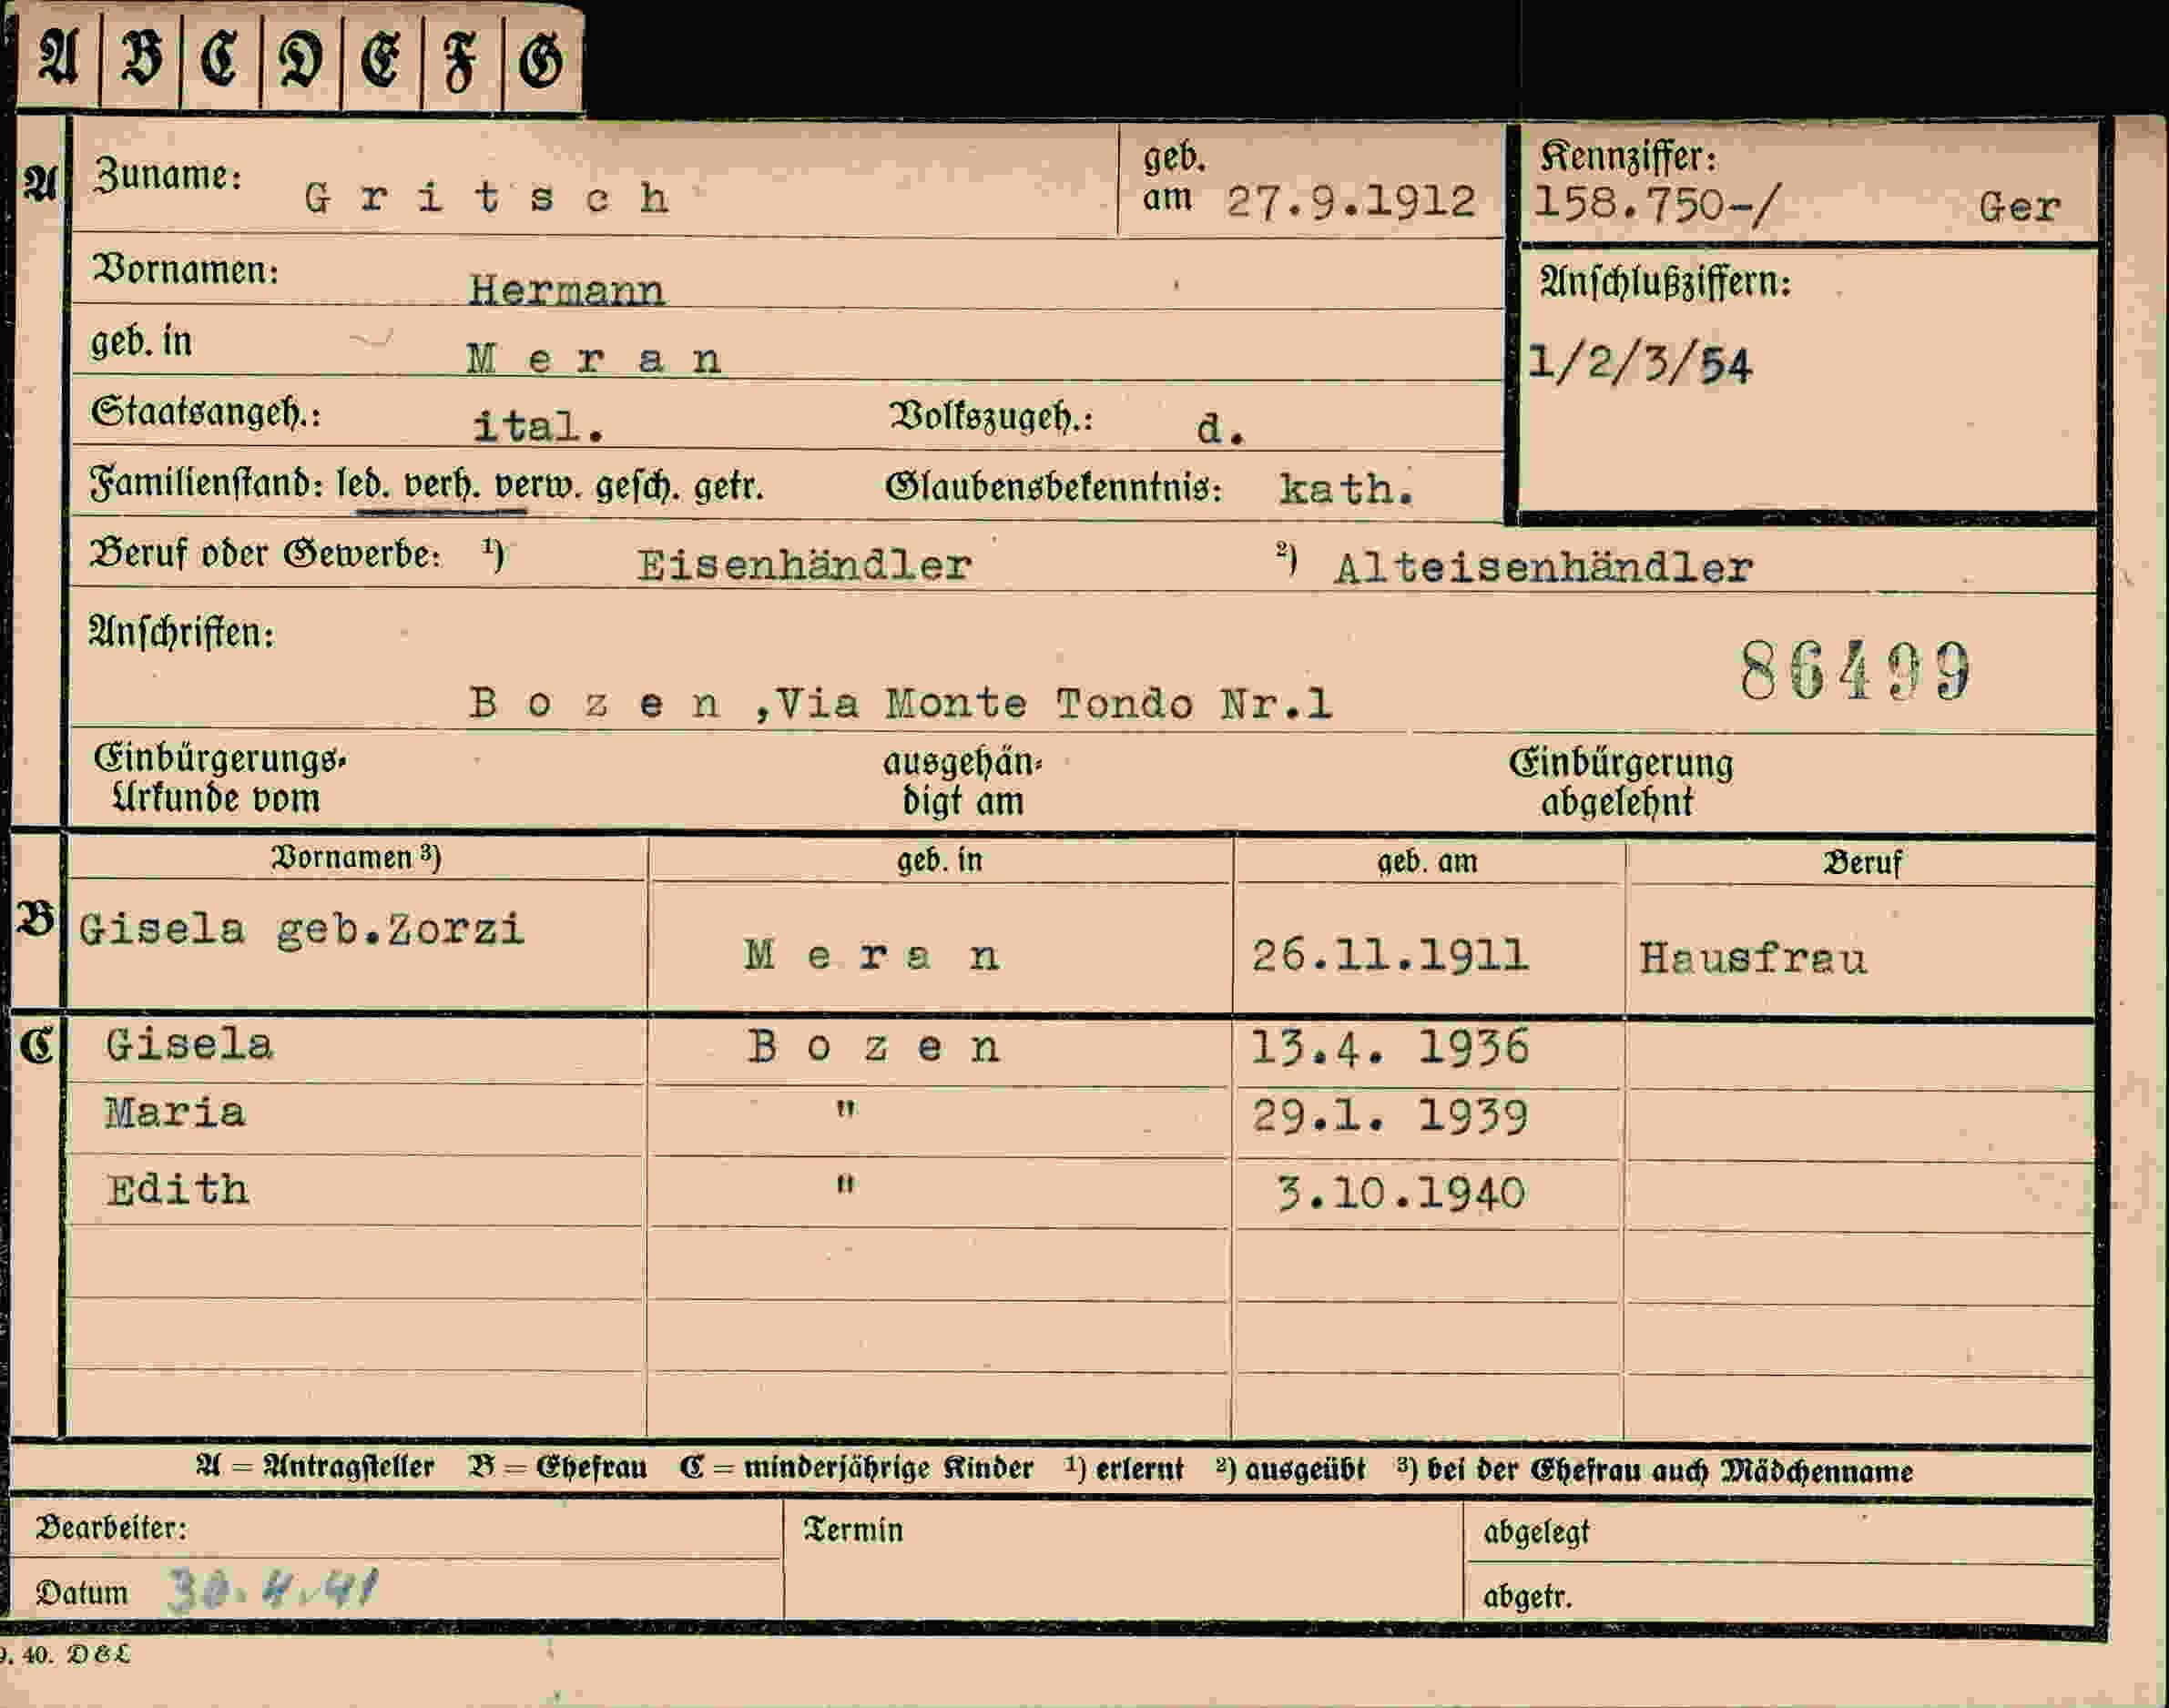 A B C D E F G
A Zuname: Gritsch geb. am 27.9.1912 Kennziffer: 158.750-/ Ger
Vornamen: Hermann Anschlußziffern:
geb. in Meran 1/2/3/54
Staatsangeh.: ital. Volkszugeh.: d.
Familienstand: led. verh. verw. gesch. getr. Glaubensbekenntnis: kath.
Beruf oder Gewerbe: ¹) Eisenhändler ²) Alteisenhändler
Anschriften: 86499
Bozen ,Via Monte Tondo Nr.1
Einbürgerungs- ausgehän- Einbürgerung
Urkunde vom digt am abgelehnt
Vornamen ³) geb. in geb. am Beruf
B Gisela geb.Zorzi Meran 26.11.1911 Hausfrau
C Gisela Bozen 13.4. 1936
Maria " 29.1. 1939
Edith " 3.10.1940
A = Antragsteller B = Ehefrau C = minderjährige Kinder ¹) erlernt ²) ausgeübt ³) bei der Ehefrau auch Mädchenname
Bearbeiter: Termin abgelegt
Datum 30.4.41 abgetr.
9. 40. D&L